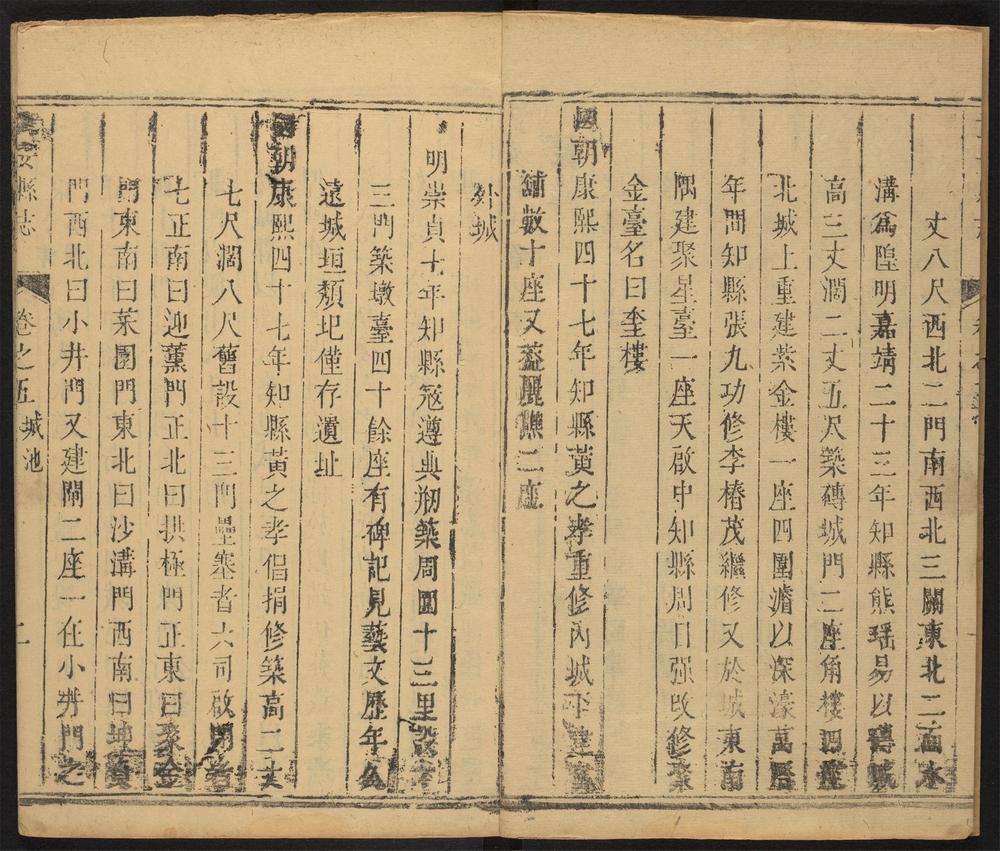 丈八尺西北二門南西北三關東北二面水
溝爲隍明嘉靖二十三年知縣熊瑤易以磚城
高三丈濶二丈五尺築磚城門二座角樓四座
北城上重建紫金樓一座四圍濬以深濠萬曆
年間知縣張九功修李椿茂繼修又於城東南
隅建聚星臺一座天啟中知縣周日强改修聚
金臺名曰奎樓
國朝康熙四十七年知縣黃之孝重修內城下建
鋪數十座又葢麗譙二座
外城
明崇貞十年知縣冦遵典剏築周圍十三里設
三門築墩臺四十餘座有碑記見藝文歷年久
遠城垣頽圯僅存遺址
國朝康熙四十七年知縣黃之孝倡捐修築高二丈
七尺濶八尺舊設十三門壘塞者六司啟閉者
七正南曰迎薰門正北曰拱極門正東曰聚金
門東南曰菜園門東北曰沙溝門西南曰
門西北曰小井門又建閘二座一在小井門之
縣志 卷之五 城池 二